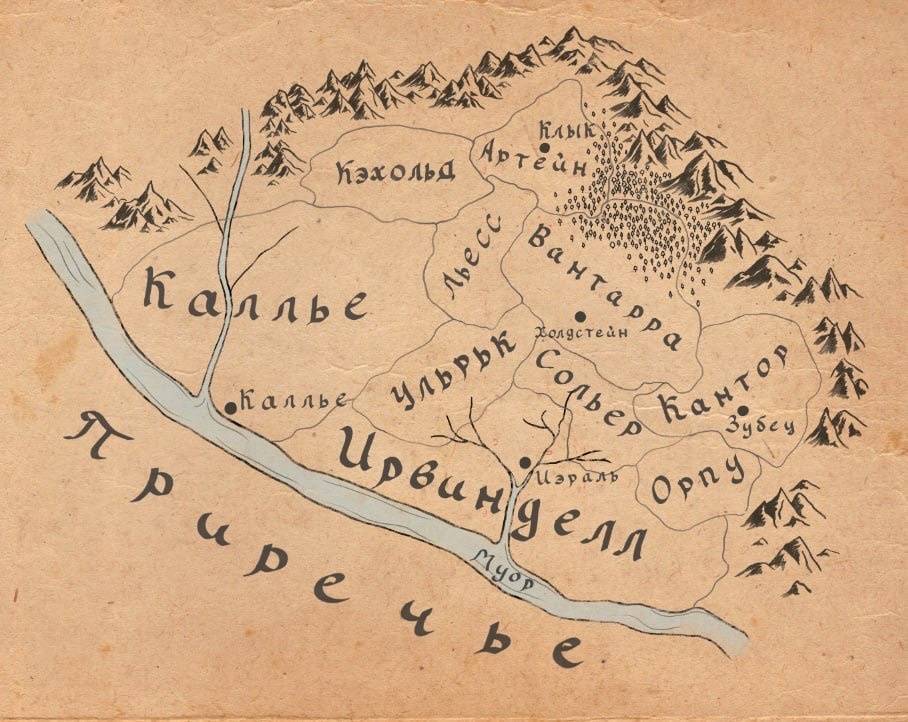 Клык
Артейн
Кэхольд
Льесс
Вантарра
Каллье
Холдстейн
Ульрьк
Сольер
Кантор
Зубец
Каллье
Ирвинделл
Иэраль
Орпу
Муор
Приречье